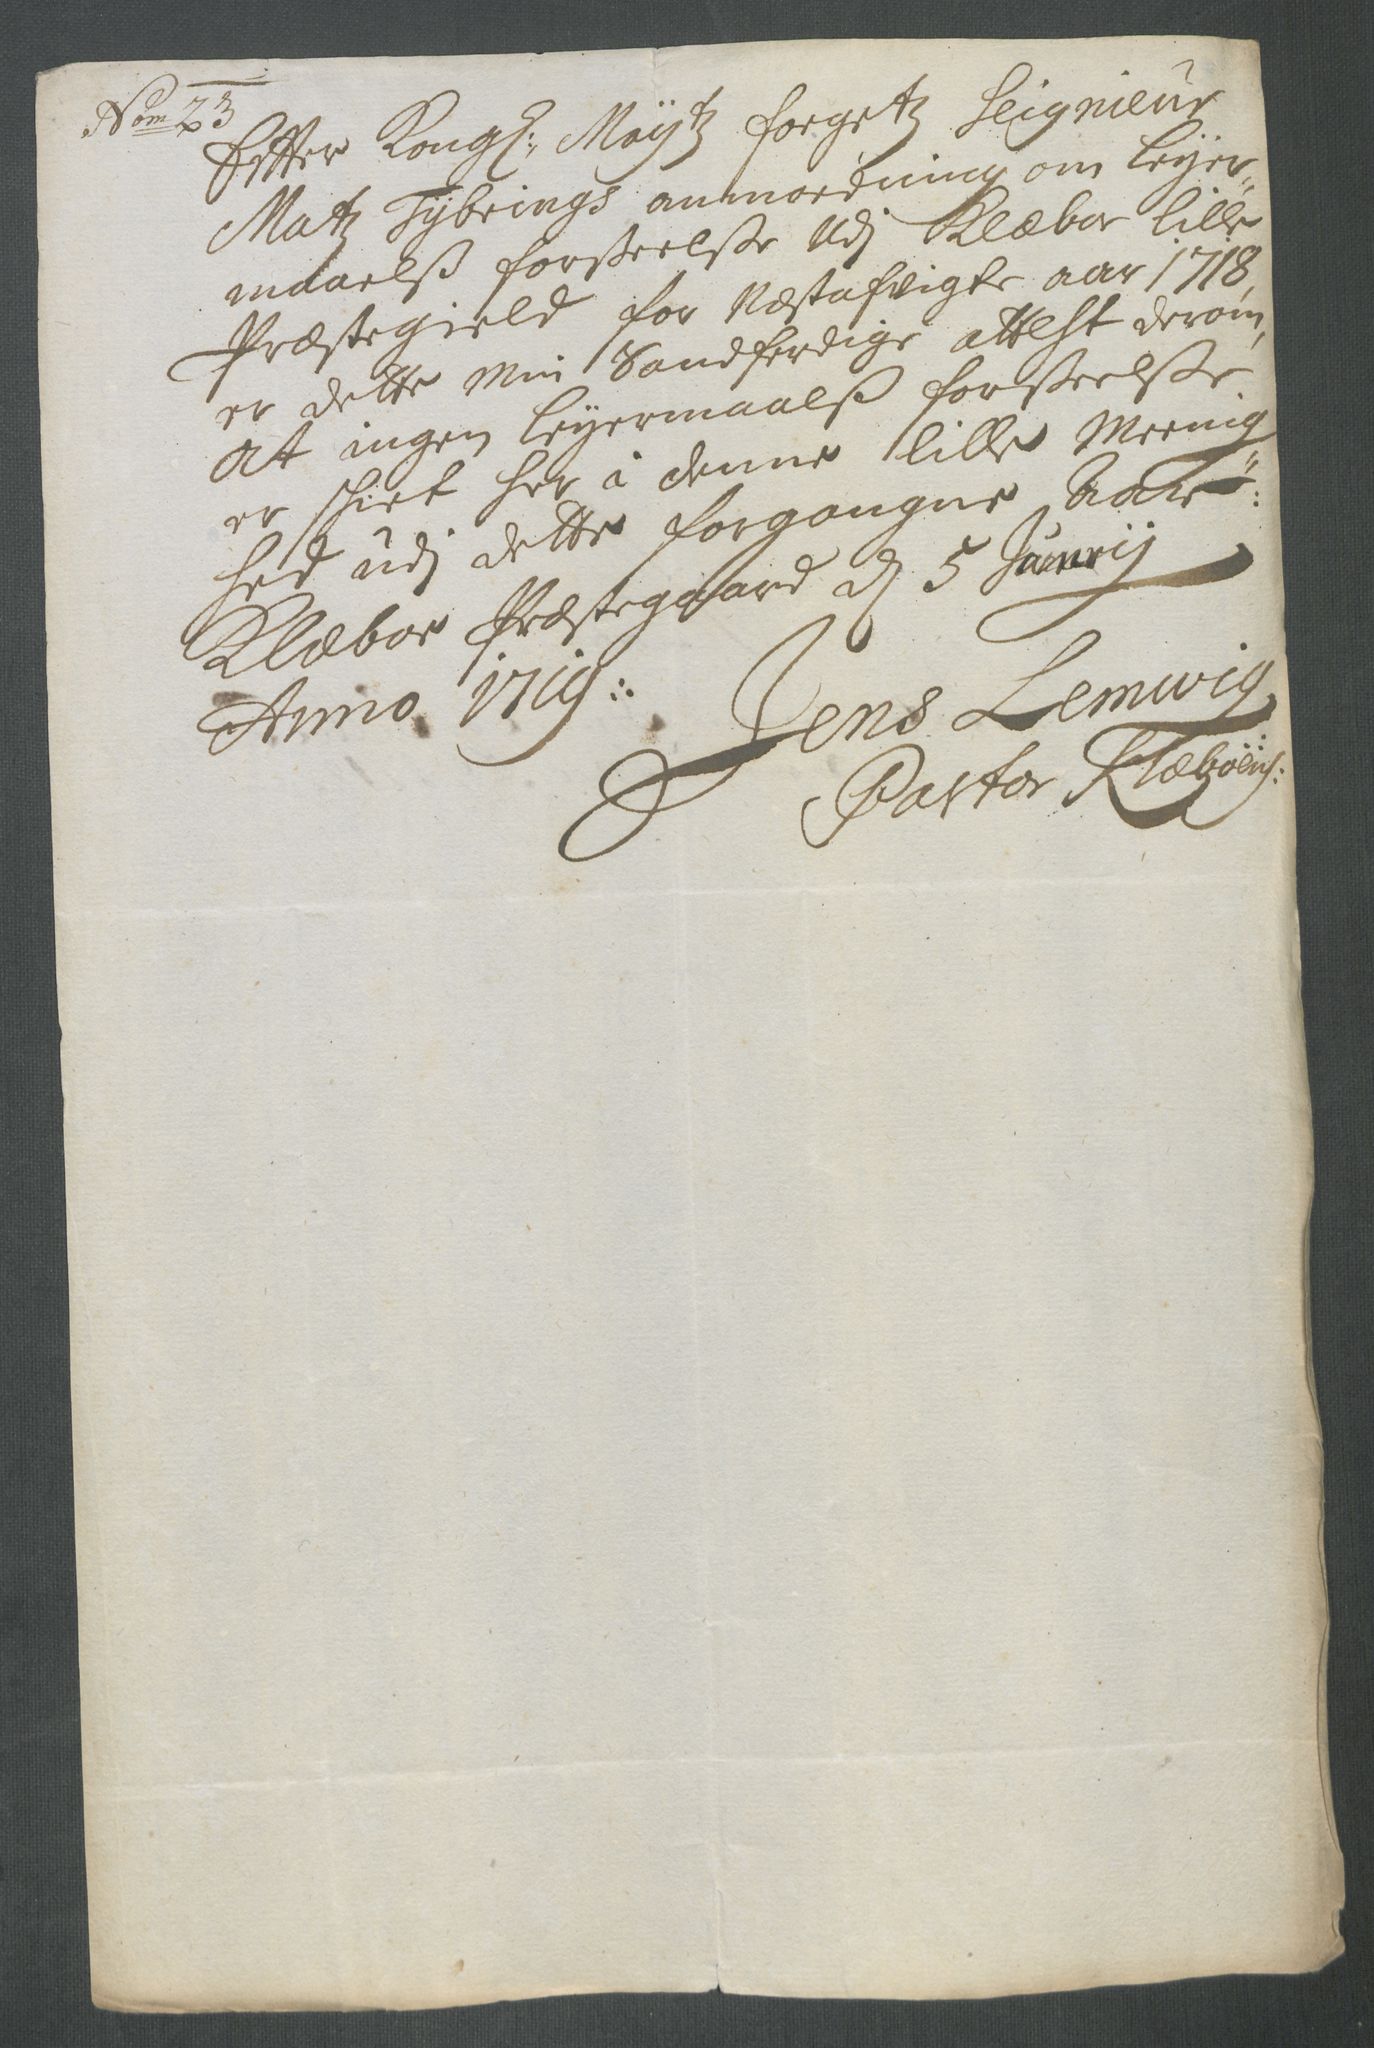 Nom 23
Efter Kongl: Maÿtz fogetz Seignieur
Matz Tÿbrings anmordning om leÿer-
maalß forseelße Udj Klæboe lille
Præstegield for Næstafvigte aar 1718,
er dette Min Sandferdige attest derom,
at ingen leÿermaalß forseelße
er skeet her i denne lille Meenig
hed udj dette forgangne Aar:
Klæboe Præstegaard d 5 Januarij
Anno 1719:
Jens Lemwig
Pastor Klæboens: